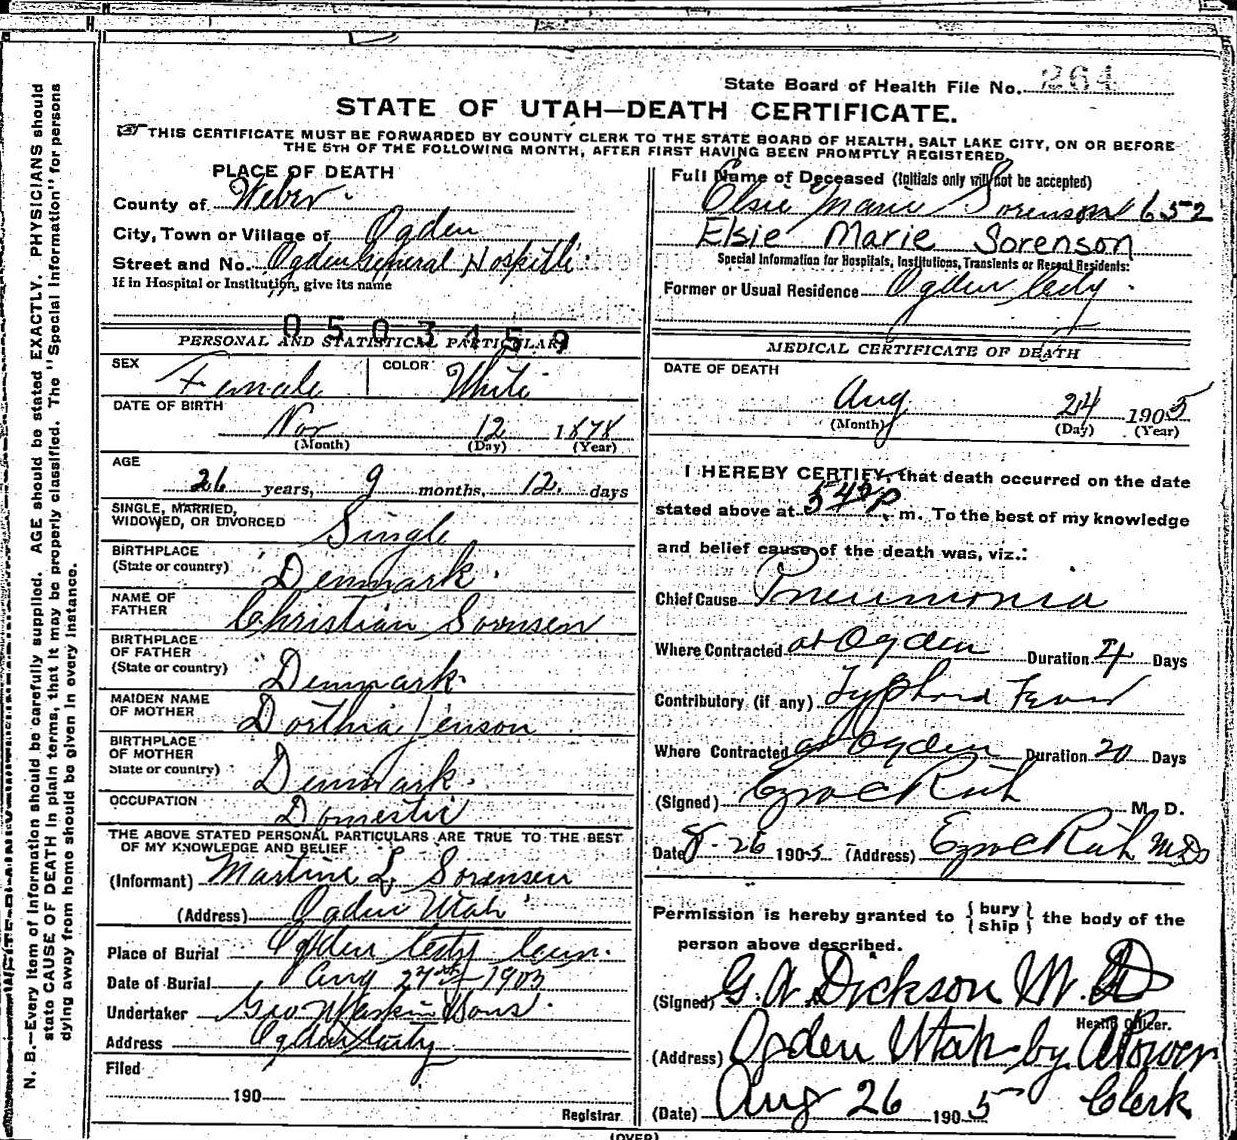 State Board of Health File No. 264
STATE OF UTAH—DEATH CERTIFICATE.
☞THIS CERTIFICATE MUST BE FORWARDED BY COUNTY CLERK TO THE STATE BOARD OF HEALTH, SALT LAKE CITY, ON OR BEFORE
THE 5TH OF THE FOLLOWING MONTH, AFTER FIRST HAVING BEEN PROMPTLY REGISTERED.
N. B.—Every item of information should be carefully supplied. AGE should be stated EXACTLY. PHYSICIANS should
state CAUSE OF DEATH in plain terms, that it may be properly classified. The "Special Information" for persons
dying away from home should be given in every instance.
PLACE OF DEATH
County of Weber
City, Town or Village of Ogden
Street and No. Ogden General Hospital
If in Hospital or Institution, give its name
0503459
PERSONAL AND STATISTICAL PARTICULARS
SEX Female COLOR White
DATE OF BIRTH
Nov 12 1878
(Month) (Day) (Year)
AGE
26 years, 9 months, 12 days
SINGLE, MARRIED,
WIDOWED, OR DIVORCED Single
BIRTHPLACE
(State or country) Denmark.
NAME OF
FATHER Christian Sorensen
BIRTHPLACE
OF FATHER
(State or country) Denmark.
MAIDEN NAME
OF MOTHER Dorthia Jenson
BIRTHPLACE
OF MOTHER
State or country) Denmark.
OCCUPATION Domestic
THE ABOVE STATED PERSONAL PARTICULARS ARE TRUE TO THE BEST
OF MY KNOWLEDGE AND BELIEF
(Informant) Martine L Sorensen
(Address) Ogden Utah
Place of Burial Ogden City Cem.
Date of Burial Aug 1905
Undertaker Geo Sons
Address Ogden City
Filed
190
Registrar
Full Name of Deceased (Initials only will not be accepted)
Elsie Marie Sorenson 652
Elsie Marie Sorenson
Special Information for Hospitals, Institutions, Transients or Recent Residents:
Former or Usual Residence Ogden City.
MEDICAL CERTIFICATE OF DEATH
DATE OF DEATH
Aug 24 1905
(Month) (Day) (Year)
I HEREBY CERTIFY, that death occurred on the date
stated above at P. m. To the best of my knowledge
and belief cause of the death was, viz.:
Chief Cause Pneumonia
Where Contracted at Ogden Duration 4 Days
Contributory (if any) Typhoid Fever
Where Contracted at Ogden Duration 20 Days
(Signed) Ezra C Rich M. D.
Date 8-26 1905 (Address) Ezra C Rich MD
Permission is hereby granted to {bury
ship} the body of the
person above described.
(Signed) G. W. Dickson M.D
Health Officer.
(Address) Ogden Utah by
(Date) Aug 26 1905 Clerk
(OVER)